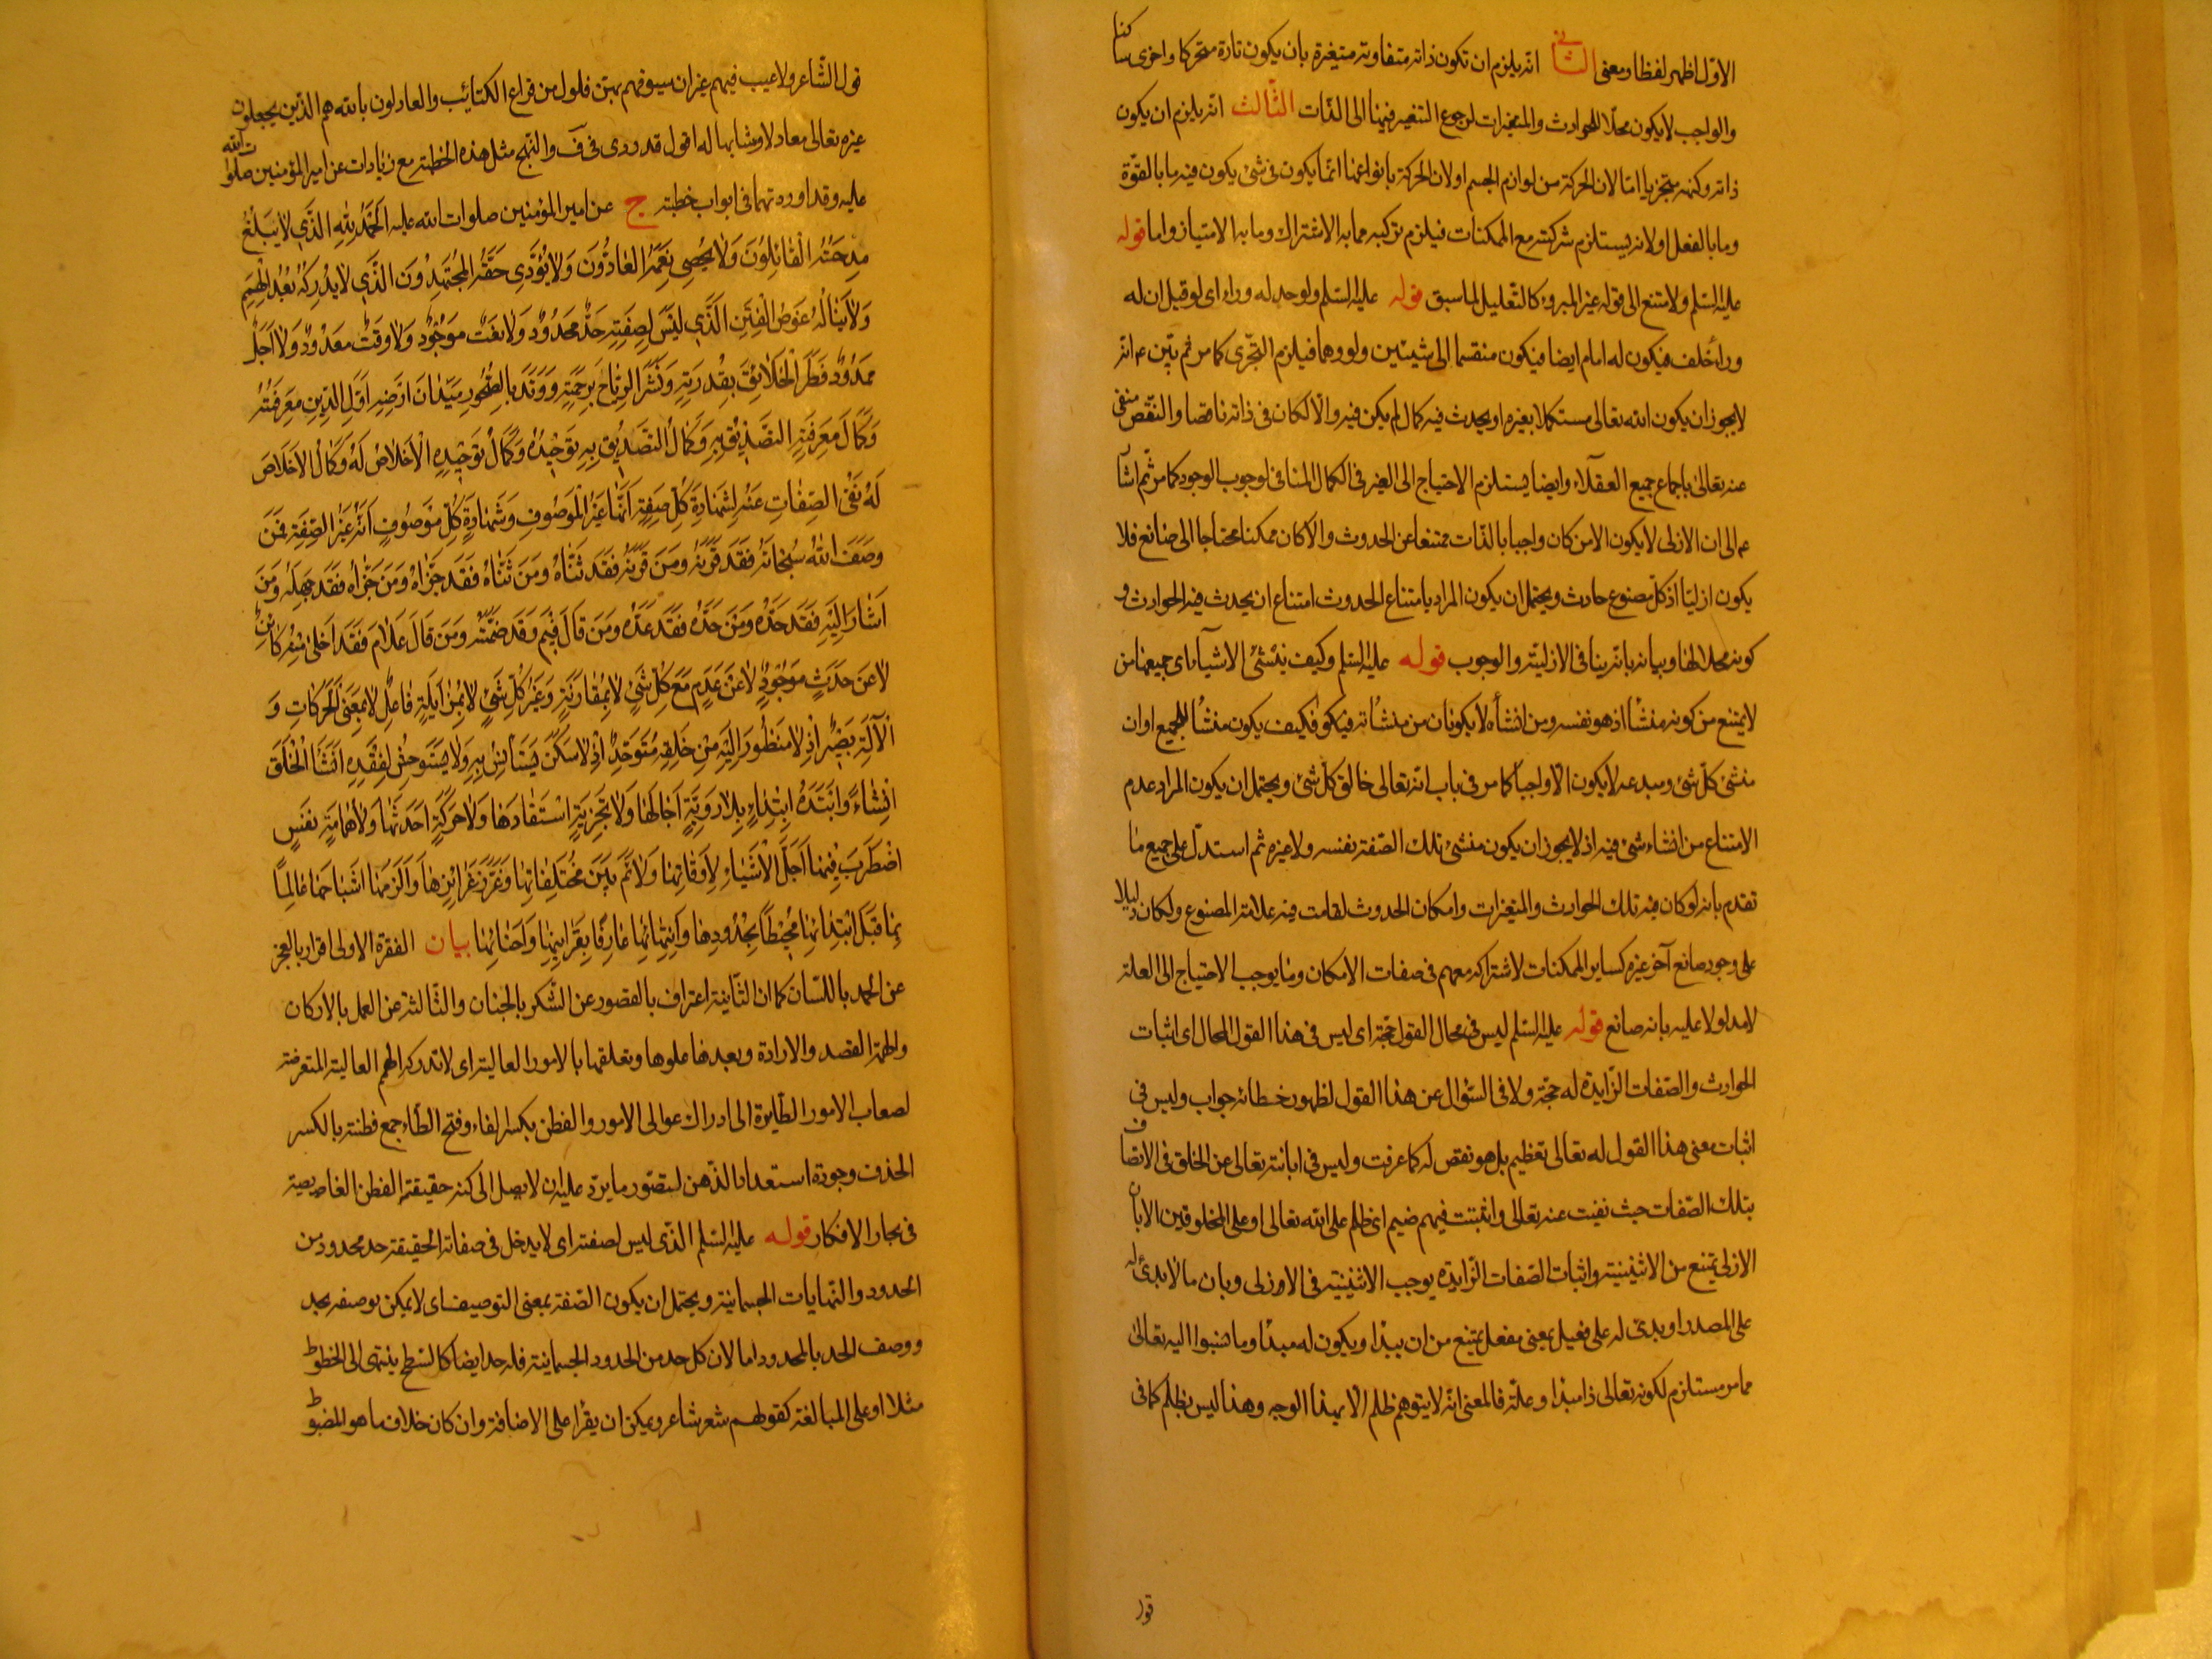 الاوّل اظهر لفظا ومعنى الثانى انه يلزم ان تكون ذاته متفاوته متغيرة بان يكون تارة متحركا واخرى ساكنا
والواجب لا يكون محلا للحوادث والمتغيرات لرجوع التغير فيها الى الذّات الثّالث انه يلزم ان يكون
ذاته وكنهه متجزيا امّا لان الحركة من لوازم الجسم او لان الحركة بانواعها انّما يكون فى شئ يكون فيه ما بالقوّة
وما بالفعل او لانه يستلزم شركته مع الممكنات فيلزم تركبه مما به الاشتراك وما به الامتياز واما قوله
عليه السّلم ولامتنع الى قوله غير المبروء كالتّعليل لما سبق قوله عليه السّلم ولو حد له وراء اى لو قيل ان له
وراء خلف فيكون له امام ايضا فيكون منقسما الى شيئين ولو وهما فيلزم التجزى كما مر ثم بيّن ع انّه
لا يجوز ان يكون الله تعالى مستكملا بغيره او يحدث فيه كمال لم يكن فيه والّا لكان فى ذاته ناقصا والنّقص منفى
عنه تعالى باجماع جميع العقلاء وايضا يستلزم الاحتياج الى الغير فى الكمال المنافى لوجوب الوجود كما مر ثم اشار
ع الى ان الازلى لا يكون الا من كان واجبا بالذّات ممتنعا عن الحدوث والا كان ممكنا محتاجا الى صانع فلا
يكون ازليّا اذ كلّ مصنوع حادث ويحتمل ان يكون المراد بامتناع الحدوث امتناع ان يحدث فيه الحوادث و
كونه محلا لها وبيانه بانّه ينافى الازليّة والوجوب قوله عليه السّلم وكيف ينشئ الاشياء اى جميعها من
لا يمتنع من كونه منشأ اذ هو نفسه ومن انشأه لا يكونان من منشأته فكيف يكون منشأ للجميع او ان
منشئ كلّ شئ ومبدعه لا يكون الّا واجبا كما مر فى باب انّه تعالى خالق كلّ شئ ويحتمل ان يكون المراد عدم
الامتناع من انشاء شئ فيه اذ لا يجوز ان يكون منشئ تلك الصّفة نفسه ولا غيره ثم استدلّ على جميع ما
تقدم بانه لو كان فيه تلك الحوادث والمتغيرات وامكان الحدوث لقامت فيه علامة المصنوع ولكان دليلا
على وجود صانع آخر غيره كساير الممكنات لاشتراكه معهم فى صفات الامكان وما يوجب الاحتياج الى العلة
لا مدلولا عليه بانه صانع قوله عليه السّلم ليس فى محال القول حجّة اى ليس فى هذا القول المحال اى اثبات
الحوادث والصّفات الزّايدة له حجّة ولا فى السّؤال عن هذا القول لظهور خطائه جواب وليس فى
اثبات معنى هذا القول له تعالى تعظيم بل هو نقص له كما عرفت وليس فى ابانته تعالى عن الخلق فى الاتصاف
بتلك الصّفات حيث نفيت عنه تعالى واثبتت فيهم ضيم اى ظلم على الله تعالى او على المخلوقين الا بان
الازلى يمتنع من الاثنينية واثبات الصّفات الزّايدة يوجب الاثنينية فى الازلى وبان ما لا بدئ له
على المصدر او بدئ له على فعيل بمعنى مفعل يمتنع من ان يبدأ ويكون له مبدأ وما نسبوا اليه تعالى
مما مر مستلزم لكونه تعالى ذا مبدأ وعلّة فالمعنى انّه لا يتوهم ظلم الا بهذا الوجه وهذا ليس بظلم كما فى
قول
قول الشّاعر ولا عيب فيهم غير ان سيوفهم بهنّ فلول من قراع الكتائب والعادلون بالله هم الّذين يجعلون
غيره تعالى معادلا ومشابها له اقول قد روى فى ف والنّهج مثل هذه الخطبة مع زيادات عن امير المؤمنين صلوات الله
عليه وقد اوردتهما فى ابواب خطبه ج عن امير المؤمنين صلوات الله عليه اَلْحَمْدُ لِلّٰهِ الَّذِى لَا يَبْلُغُ
مِدْحَتَهُ الْقَائِلُونَ وَلَا يُحْصِى نِعَمَهُ الْعَادُّونَ وَلَا يُؤَدِّى حَقَّهُ الْمُجْتَهِدُونَ الَّذِى لَا يُدْرِكُهُ بُعْدُ الْهِمَمِ
وَلَا يَنَالُهُ غَوْصُ الْفِطَنِ الَّذِى لَيْسَ لِصِفَتِهِ حَدٌّ مَحْدُودٌ وَلَا نَعْتٌ مَوْجُودٌ وَلَا وَقْتٌ مَعْدُودٌ وَلَا اَجَلٌ
مَمْدُودٌ فَطَرَ الْخَلَائِقَ بِقُدْرَتِهِ وَنَشَرَ الرِّيَاحَ بِرَحْمَتِهِ وَوَتَّدَ بِالصُّخُورِ مَيَدَانَ اَرْضِهِ اَوَّلُ الدِّينِ مَعْرِفَتُهُ
وَكَمَالُ مَعْرِفَتِهِ التَّصْدِيقُ بِهِ وَكَمَالُ التَّصْدِيقِ بِهِ تَوْحِيدُهُ وَكَمَالُ تَوْحِيدِهِ الْاِخْلَاصُ لَهُ وَكَمَالُ الْاِخْلَاصِ
لَهُ نَفْىُ الصِّفَاتِ عَنْهُ لِشَهَادَةِ كُلِّ صِفَةٍ اَنَّهَا غَيْرُ الْمَوْصُوفِ وَشَهَادَةِ كُلِّ مَوْصُوفٍ اَنَّهُ غَيْرُ الصِّفَةِ فَمَنْ
وَصَفَ اللهَ سُبْحَانَهُ فَقَدْ قَرَنَهُ وَمَنْ قَرَنَهُ فَقَدْ ثَنَّاهُ وَمَنْ ثَنَّاهُ فَقَدْ جَزَّاهُ وَمَنْ جَزَّاهُ فَقَدْ جَهِلَهُ وَمَنْ
اَشَارَ اِلَيْهِ فَقَدْ حَدَّهُ وَمَنْ حَدَّهُ فَقَدْ عَدَّهُ وَمَنْ قَالَ فِيمَ فَقَدْ ضَمَّنَهُ وَمَنْ قَالَ عَلَامَ فَقَدْ اَخْلَى مِنْهُ كَائِنٌ
لَا عَنْ حَدَثٍ مَوْجُودٌ لَا عَنْ عَدَمٍ مَعَ كُلِّ شَىْءٍ لَا بِمُقَارَنَةٍ وَغَيْرُ كُلِّ شَىْءٍ لَا بِمُزَايَلَةٍ فَاعِلٌ لَا بِمَعْنَى الْحَرَكَاتِ وَ
الْآلَةِ بَصِيرٌ اِذْ لَا مَنْظُورَ اِلَيْهِ مِنْ خَلْقِهِ مُتَوَحِّدٌ اِذْ لَا سَكَنَ يَسْتَأْنِسُ بِهِ وَلَا يَسْتَوْحِشُ لِفَقْدِهِ اَنْشَأَ الْخَلْقَ
اِنْشَاءً وَابْتَدَأَهُ ابْتِدَاءً بِلَا رَوِيَّةٍ اَجَالَهَا وَلَا تَجْرِبَةٍ اسْتَفَادَهَا وَلَا حَرَكَةٍ اَحْدَثَهَا وَلَا هَمَامَةِ نَفْسٍ
اضْطَرَبَ فِيهَا اَجَّلَ الْاَشْيَاءَ لِاَوْقَاتِهَا وَلَائَمَ بَيْنَ مُخْتَلِفَاتِهَا وَغَرَّزَ غَرَائِزَهَا وَاَلْزَمَهَا اَشْبَاحَهَا عَالِمًا
بِهَا قَبْلَ ابْتِدَائِهَا مُحِيطًا بِحُدُودِهَا وَانْتِهَائِهَا عَارِفًا بِقَرَائِنِهَا وَاَحْنَائِهَا بيان الفقرة الاولى اقرار بالعجز
عن الحمد باللسّان كما ان الثّانية اعتراف بالقصور عن الشّكر بالجنان والثّالثة عن العمل بالاركان
والهمة القصد والارادة وبعدها علوها وتعلقها بالامور العالية اى لا تدركه الهمم العالية المتعرضة
لصعاب الامور الطّايرة الى ادراك عوالى الامور والفطن بكسر الفاء وفتح الطّاء جمع فطنة بالكسر
الحذق وجودة استعداد الذّهن لتصوّر ما يرد عليه ان لا يصل الى كنه حقيقته الفطن الغائصة
فى بحار الافكار قوله عليه السّلم الّذى ليس لصفته اى لا يدخل فى صفاته الحقيقة حد محدود من
الحدود والنّهايات الجسمانية ويحتمل ان يكون الصّفة بمعنى التوصيف اى لا يمكن توصيفه بحد
ووصف الحد بالمحدود اما لان كل حد من الحدود الجسمانية فله حد ايضا كالسّطح ينتهى الى الخطوط
مثلا او على المبالغة كقولهم شعر شاعر ويمكن ان يقرأ على الاضافة وان كان خلاف ما هو المضبوط